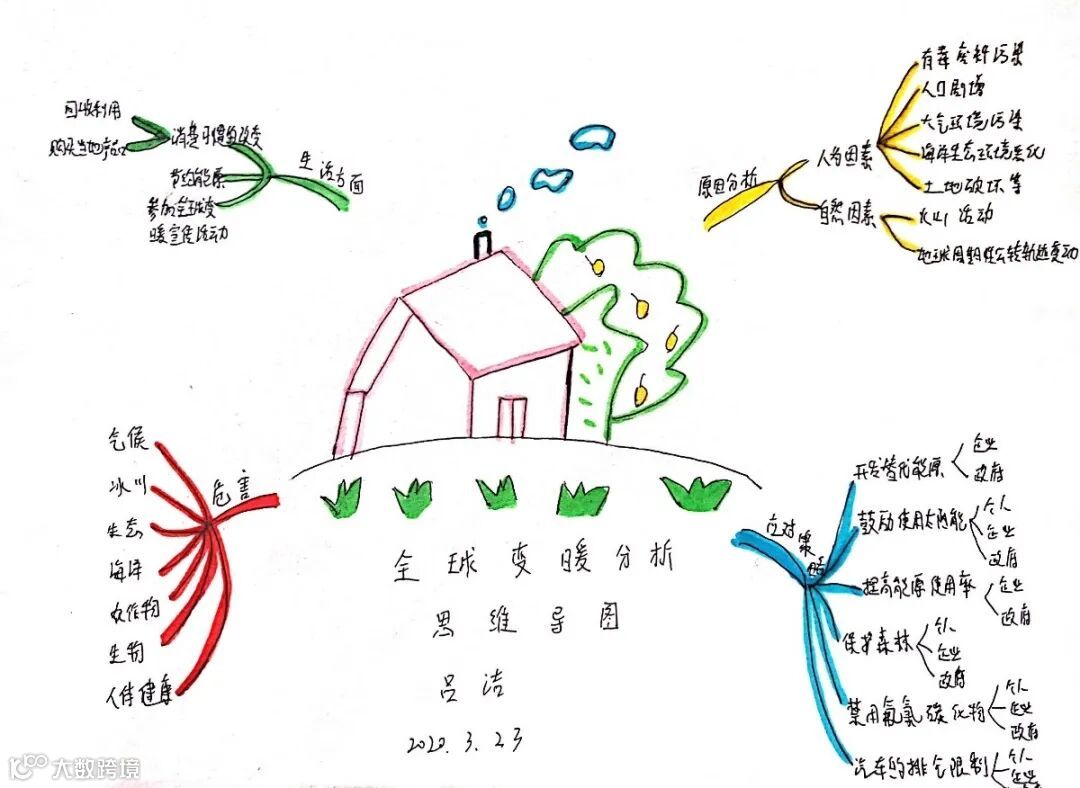 回收利用
购买当地产品
消费习惯的改变
节约能源
参加全球变
暖宣传活动
生活方面
原因分析
人为因素
有毒废料污染
人口剧增
大气环境污染
海洋生态环境恶化
土地破坏等
自然因素
火山活动
地球周期性公转轨迹变动
危害
气候
冰川
生态
海洋
农作物
生物
人体健康
全球变暖分析
思维导图
吕洁
2020.3.23
应对策略
开发替代能源
企业
政府
鼓励使用太阳能
个人
企业
政府
提高能源使用率
企业
政府
保护森林
个人
企业
政府
禁用氟氯碳化物
个人
企业
政府
汽车的排气限制
个人
企业
大数跨境